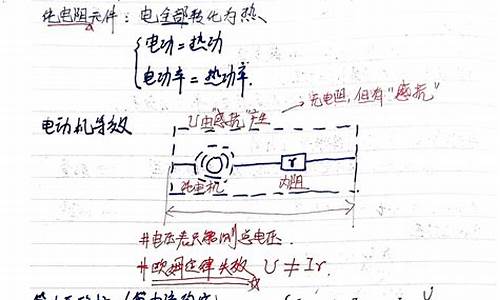 纯电阻元件：电全部转化为热
电功=热功
电功率=热功率.
无电阻,但有"感抗"
U由"感抗"产生
电动机等效
r
纯电机 内阻
#电压表只能测总电压.
#欧姆定律失效 U≠Ir.